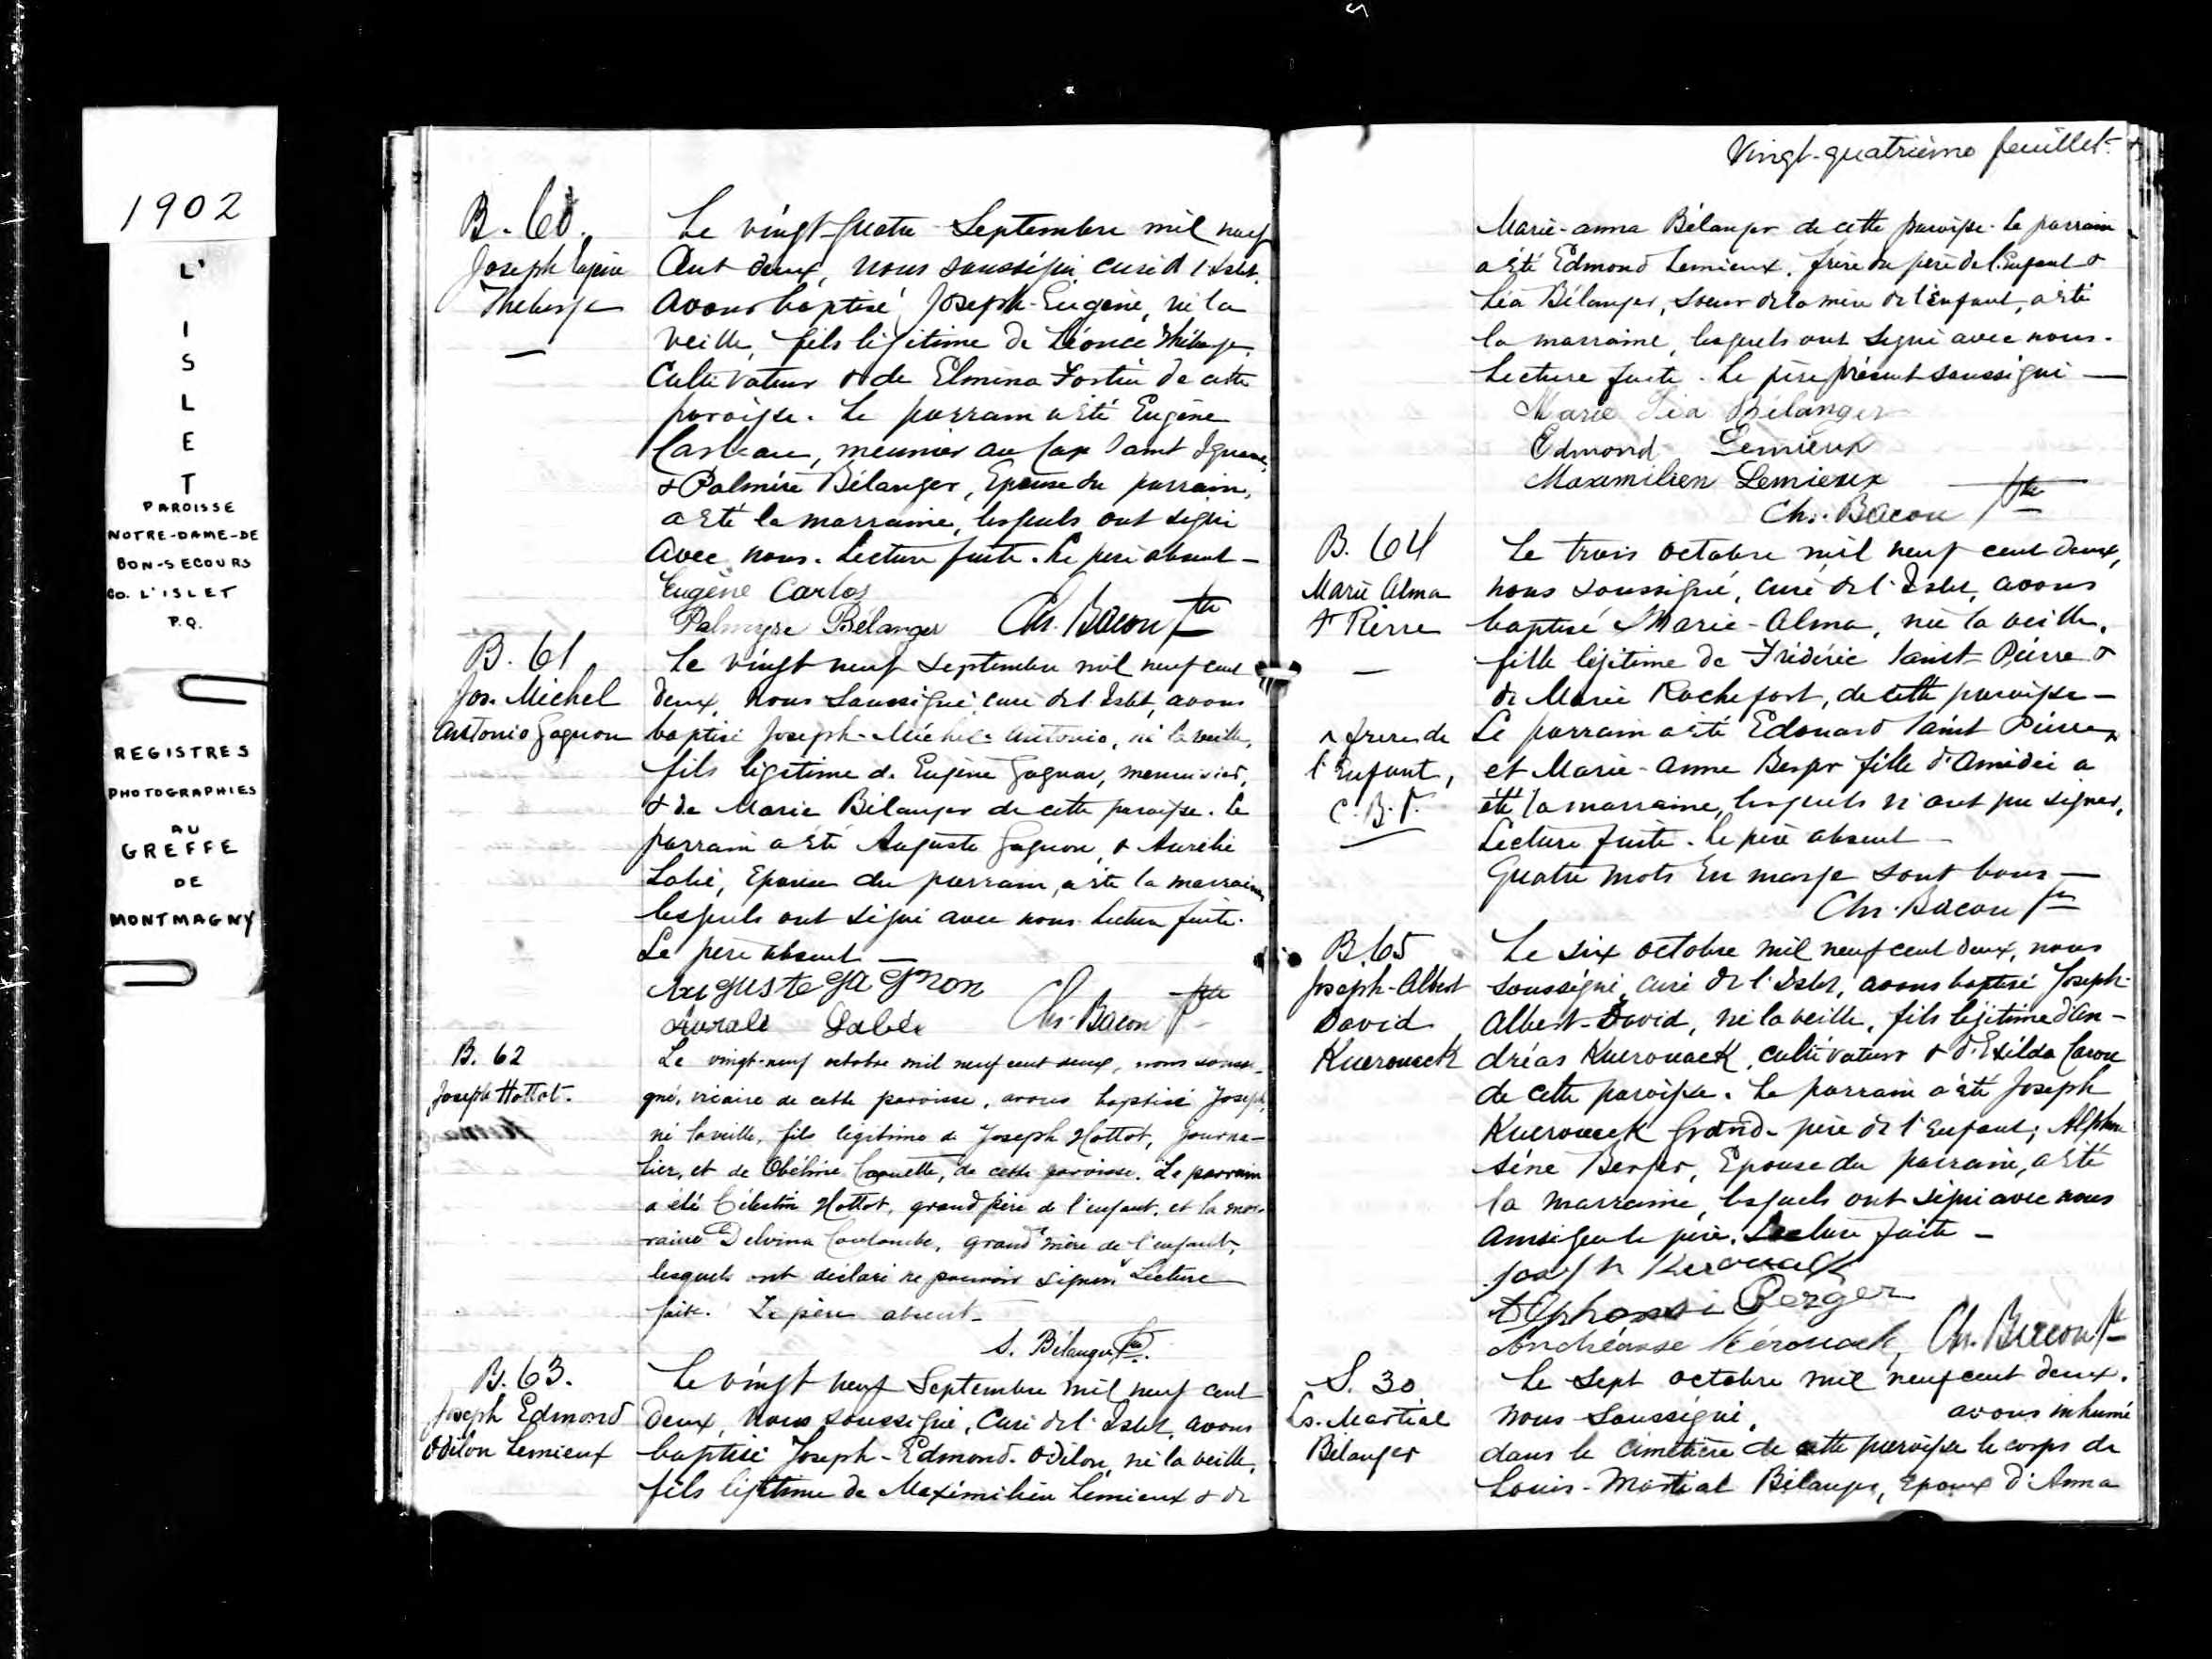 1902
L'
I
S
L
E
T
PAROISSE
NOTRE-DAME-DE
BON-SECOURS
CO. L'ISLET
P.Q.
REGISTRES
PHOTOGRAPHIES
AU
GREFFE
DE
MONTMAGNY
B. 60.
Joseph Eugène
Theberge
Le vingt-quatre Septembre mil neuf
Cent deux, nous soussigné curé de l'Islet
avons baptisé Joseph-Eugène, né la
veille, fils légitime de Léonce Théberge,
Cultivateur & de Elmina Fortin de cette
paroisse. Le parrain a été Eugène
meunier au Cap Saint Ignace,
& Palmire Bélanger, Epouse du parrain,
a été la marraine, lesquels ont signé
avec nous. Lecture faite. Le père absent -
Eugène Carlos
Palmyre Bélanger Ch. Bacon Ptre
B. 61
Jos. Michel
Antonio Gagnon
Le vingt neuf Septembre mil neuf cent
deux, nous soussigné, curé de l'Islet, avons
baptisé Joseph-Michel-Antonio, né la veille,
fils légitime de Eugène Gagnon, menuisier,
& de Marie Bélanger de cette paroisse. Le
parrain a été Auguste Gagnon, & Aurélie
Labé, Epouse du parrain, a été la marraine,
lesquels ont signé avec nous. Lecture faite.
Le père absent -
Auguste gagnon
Labée Ch. Bacon Ptre
B. 62
Joseph Hottot.
Le vingt-neuf octobre mil neuf cent deux, nous soussi-
gné, vicaire de cette paroisse, avons baptisé Joseph,
né la veille, fils légitime de Joseph Hottot, journa-
lier, et de Obéline Caouette, de cette paroisse. Le parrain
a été Célestin Hottot, grand père de l'enfant, et la mar-
raine Delvina Coulombe, grand'mère de l'enfant,
lesquels ont déclaré ne pouvoir signer. Lecture
faite. Le père absent.
S. Bélanger Ptre.
B. 63.
Joseph Edmond
Odilon Lemieux
Le vingt neuf Septembre mil neuf cent
deux, nous soussigné, Curé de l'Islet, avons
baptisé Joseph-Edmond-Odilon, né la veille,
fils légitime de Maximilien Lemieux & de
Vingt-quatrième feuillet.
Marie-anna Bélanger de cette paroisse. Le parrain
a été Edmond Lemieux, frère du père de l'Enfant &
Léa Bélanger, Soeur de la mère de l'enfant, a été
la marraine, lesquels ont signé avec nous.
Lecture faite. Le père présent soussigné —
Marie Léa Bélanger
Edmond Lemieux
Maximilien Lemieux
Ch. Bacon Ptre
B. 64
Marie Alma
St Pierre
Le trois octobre mil neuf cent deux,
nous soussigné, curé de l'Islet, avons
baptisé Marie-Alma, née la veille,
fille légitime de Frédéric Saint Pierre &
de Marie Rochefort, de cette paroisse -
Le parrain a été Edouard Saint Pierre
et Marie-Anne Berger fille d'Amédée a
été la marraine, lesquels n'ont pu signer.
Lecture faite. Le père absent -
Quatre mots en marge sont bons —
Ch. Bacon Ptre
frère de
l'Enfant,
C. B. P.
B. 65
Joseph-Albert
David
Kuerouack
Le six octobre mil neuf cent deux, nous
soussigné, curé de l'Islet, avons baptisé Joseph-
Albert-David, né la veille, fils légitime d'An-
dréas Kuerouack, cultivateur & d'Exilda Caron
de cette paroisse. Le parrain a été Joseph
Kuerouack Grand-père de l'enfant; Alphon
sine Berger, Epouse du parrain, a été
la marraine, lesquels ont signé avec nous
ainsi que le père. Lecture faite -
Joseph Kerouack
Berger
Kérouack, Ch. Bacon Ptre
S. 30
Ls. Martial
Bélanger
Le sept octobre mil neuf cent deux,
nous soussigné, avons inhumé
dans le cimetière de cette paroisse le corps de
Louis-Martial Bélanger, époux d'Anna